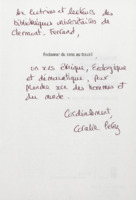 Aux lectrices et lecteurs des
bibliothèques universitaires de
Clermont-Ferrand,
Redonner du sens au travail
un res éthique, écologique
et démocratique, pour
prendre soin des hommes et
du monde.
Cordialement,
Coralie Perez